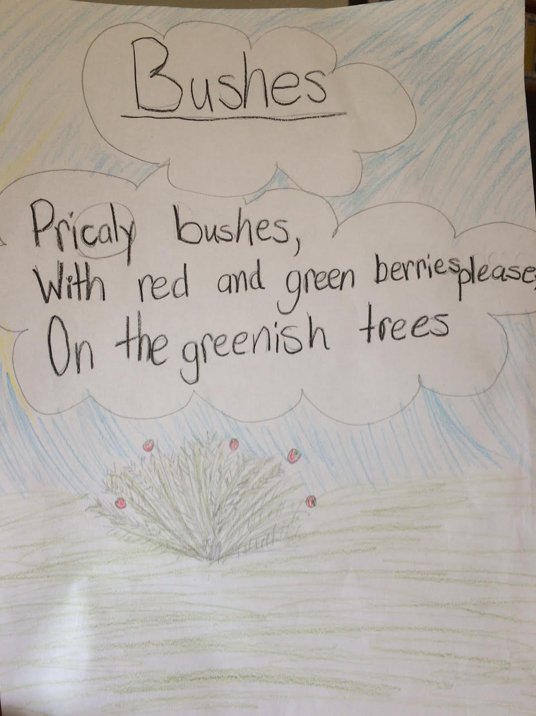 Bushes
Pricaly bushes,
With red and green berries please,
On the greenish trees